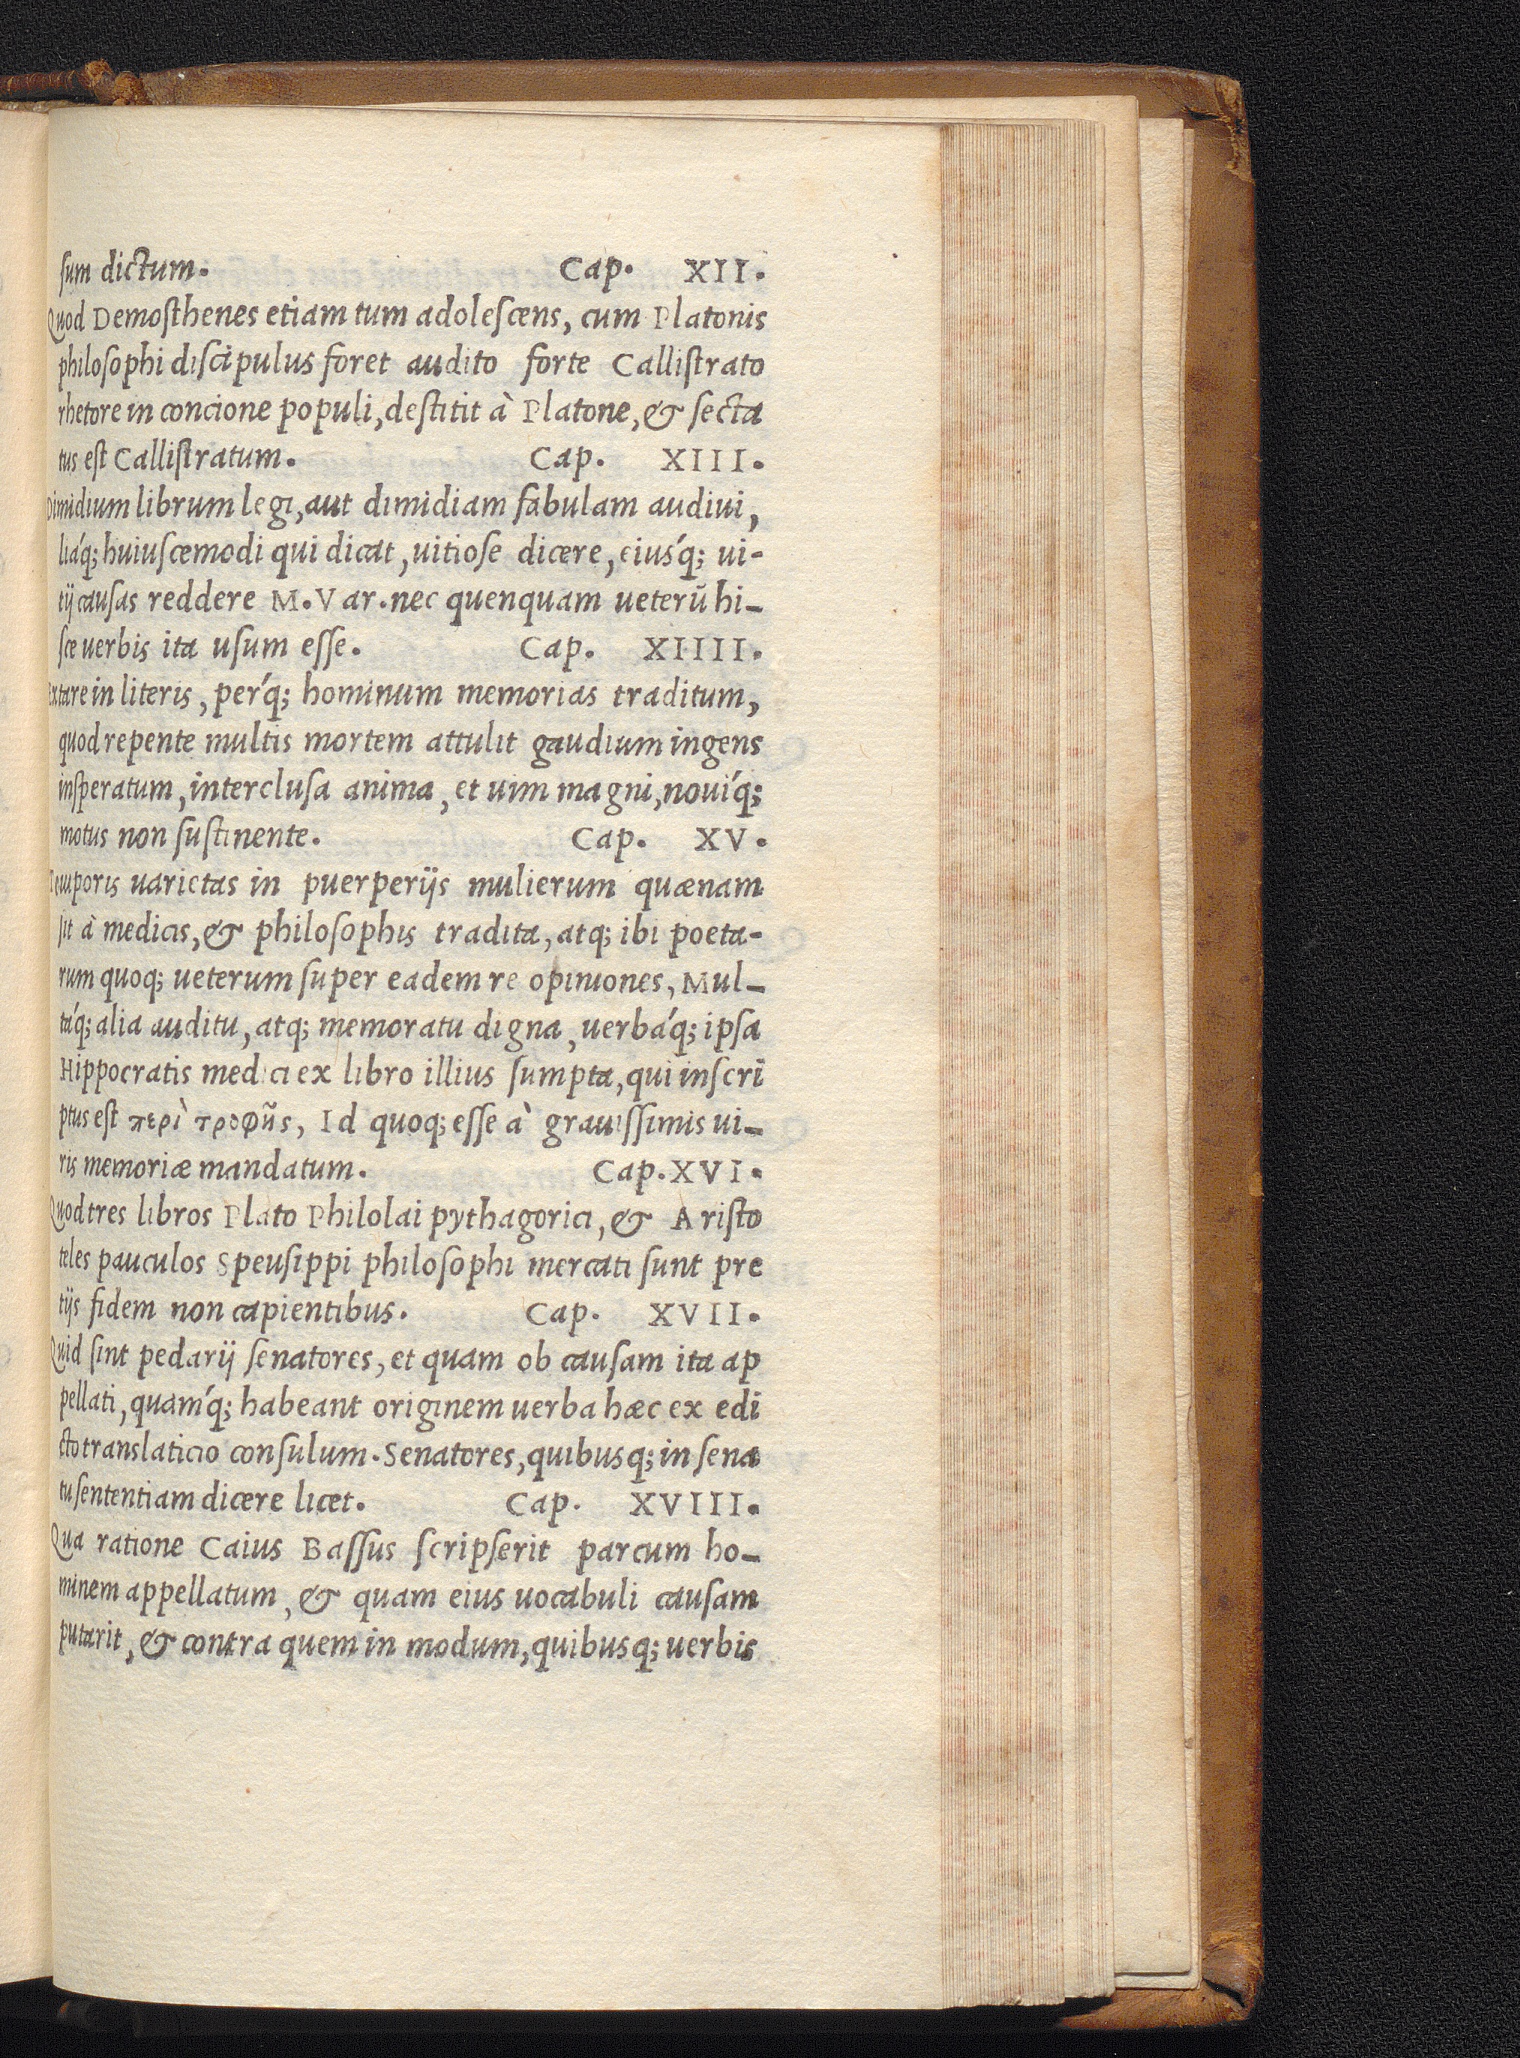 sum dictum. Cap. XII.
Quod Demosthenes etiam tum adolescens, cum Platonis
philosophi discipulus foret audito forte Callistrato
rhetore in concione populi, destitit à Platone, & secta
tus est Callistratum. Cap. XIII.
Dimidium librum legi, aut dimidiam fabulam audiui,
liáq; huiuscemodi qui dicat, uitiose dicere, eiusq́; ui-
tij causas reddere M. Var. nec quenquam ueterũ hi-
sce uerbis ita usum esse. Cap. XIIII.
Extare in literis, perq́; hominum memorias traditum,
quod repente multis mortem attulit gaudium ingens
insperatum, interclusa anima, et uim magni, nouiq́;
motus non sustinente. Cap. XV.
Temporis uarietas in puerperijs mulierum quænam
sit à medicis, & philosophis tradita, atq; ibi poeta-
rum quoq; ueterum super eadem re opiniones, Mul-
táq; alia auditu, atq; memoratu digna, uerbáq; ipsa
Hippocratis medici ex libro illius sumpta, qui inscri
ptus est περὶ τροφῆς, Id quoq; esse à grauissimis ui-
ris memoriæ mandatum. Cap. XVI.
Quod tres libros Plato Philolai pythagorici, & Aristo
teles pauculos Speusippi philosophi mercati sunt pre
tijs fidem non capientibus. Cap. XVII.
Quid sint pedarij senatores, et quam ob causam ita ap
pellati, quamq́; habeant originem uerba hæc ex edi
cto translaticio consulum. Senatores, quibusq; in sena
tu sententiam dicere licet. Cap. XVIII.
Qua ratione Caius Bassus scripserit parcum ho-
minem appellatum, & quam eius uocabuli causam
putarit, & contra quem in modum, quibusq; uerbis